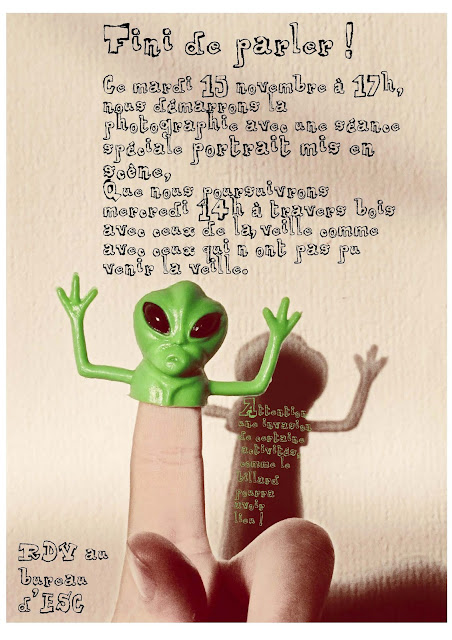 Fini de parler !
Ce mardi 15 novembre à 17h,
nous démarrons la
photographie avec une séance
spéciale portrait mis en
scène,
Que nous poursuivrons
mercredi 14h à travers bois
avec ceux de la, veille comme
avec ceux qui n ont pas pu
venir la veille.
Attention
une invasion
de certaine
activités,
comme le
billard
pourra
avoir
lieu !
RDV au
bureau
d'ESC